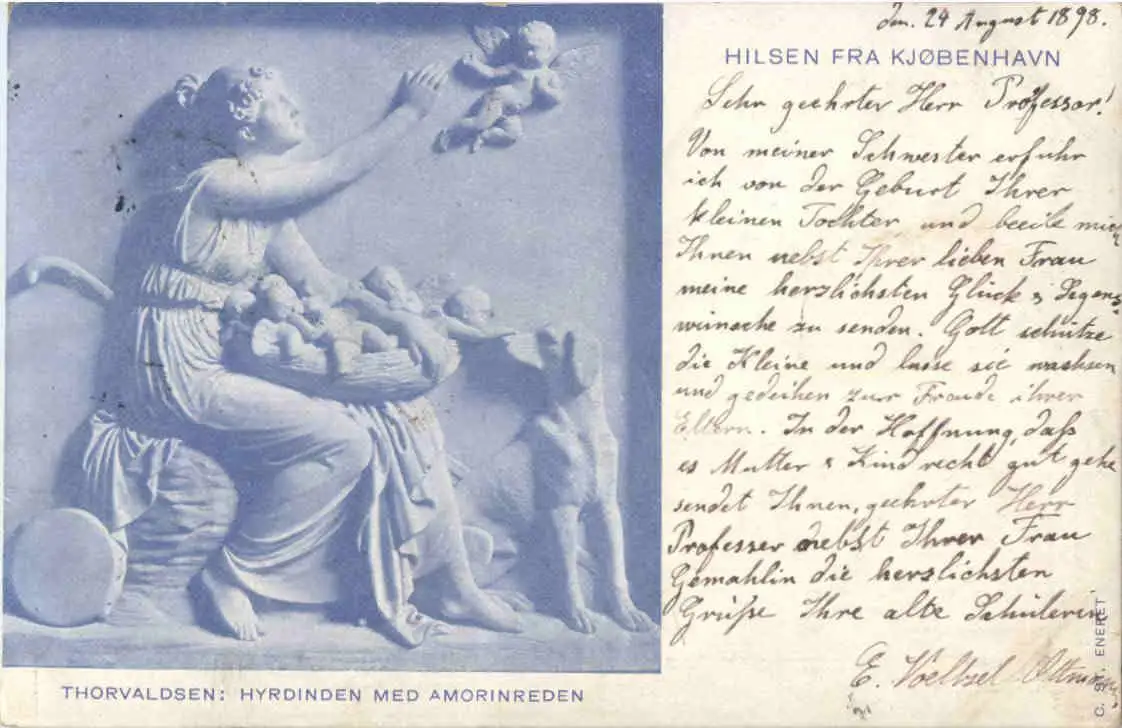 den. 24 August 1898.
HILSEN FRA KJØBENHAVN
Sehr geehrter Herr Professor!
Von meiner Schwester erfuhr
ich von der Geburt Ihrer
kleinen Tochter und beeile mich
Ihnen nebst Ihrer lieben Frau
meine herzlichsten Glück & Segens-
wünsche zu senden. Gott schütze
die Kleine und lasse sie wachsen
und gedeihen zur Freude ihrer
Eltern. In der Hoffnung, daß
es Mutter & Kind recht gut gehe
sendet Ihnen, geehrter Herr
Professer nebst Ihrer Frau
Gemahlin die herzlichsten
Grüße Ihre alte Schülerin
E.
THORVALDSEN: HYRDINDEN MED AMORINREDEN
ENERET